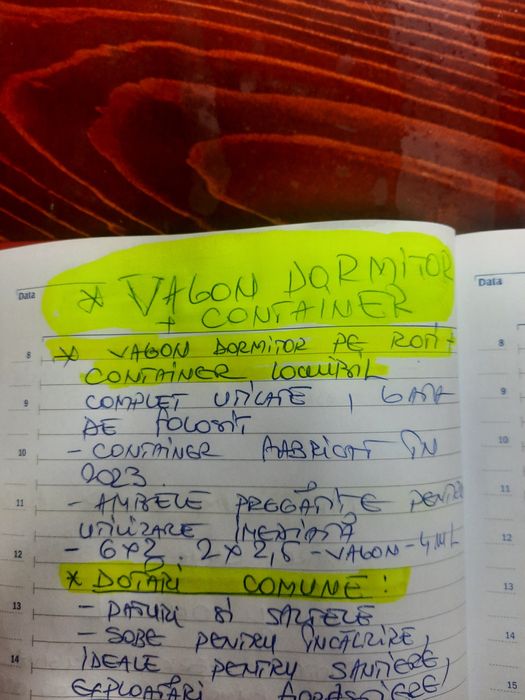 Data
* VAGON DORMITOR
+ CONTAINER
8 * VAGON DORMITOR PE ROTI +
CONTAINER LOCUIBIL
9 COMPLET UTILATE, GATA
DE FOLOSIT
10 - CONTAINER FABRICAT ÎN
2023
11 - AMBELE PREGĂTITE PENTRU
UTILIZARE IMEDIATĂ
12 - 6x2 2x2,5 - VAGON -
* DOTĂRI COMUNE:
13 - PATURI SI SALTELE
- SOBE PENTRU ÎNCĂLZIRE,
14 IDEALE PENTRU SANTIERE,
EXPLOATĂRI
Data
8
9
10
11
12
13
14
15